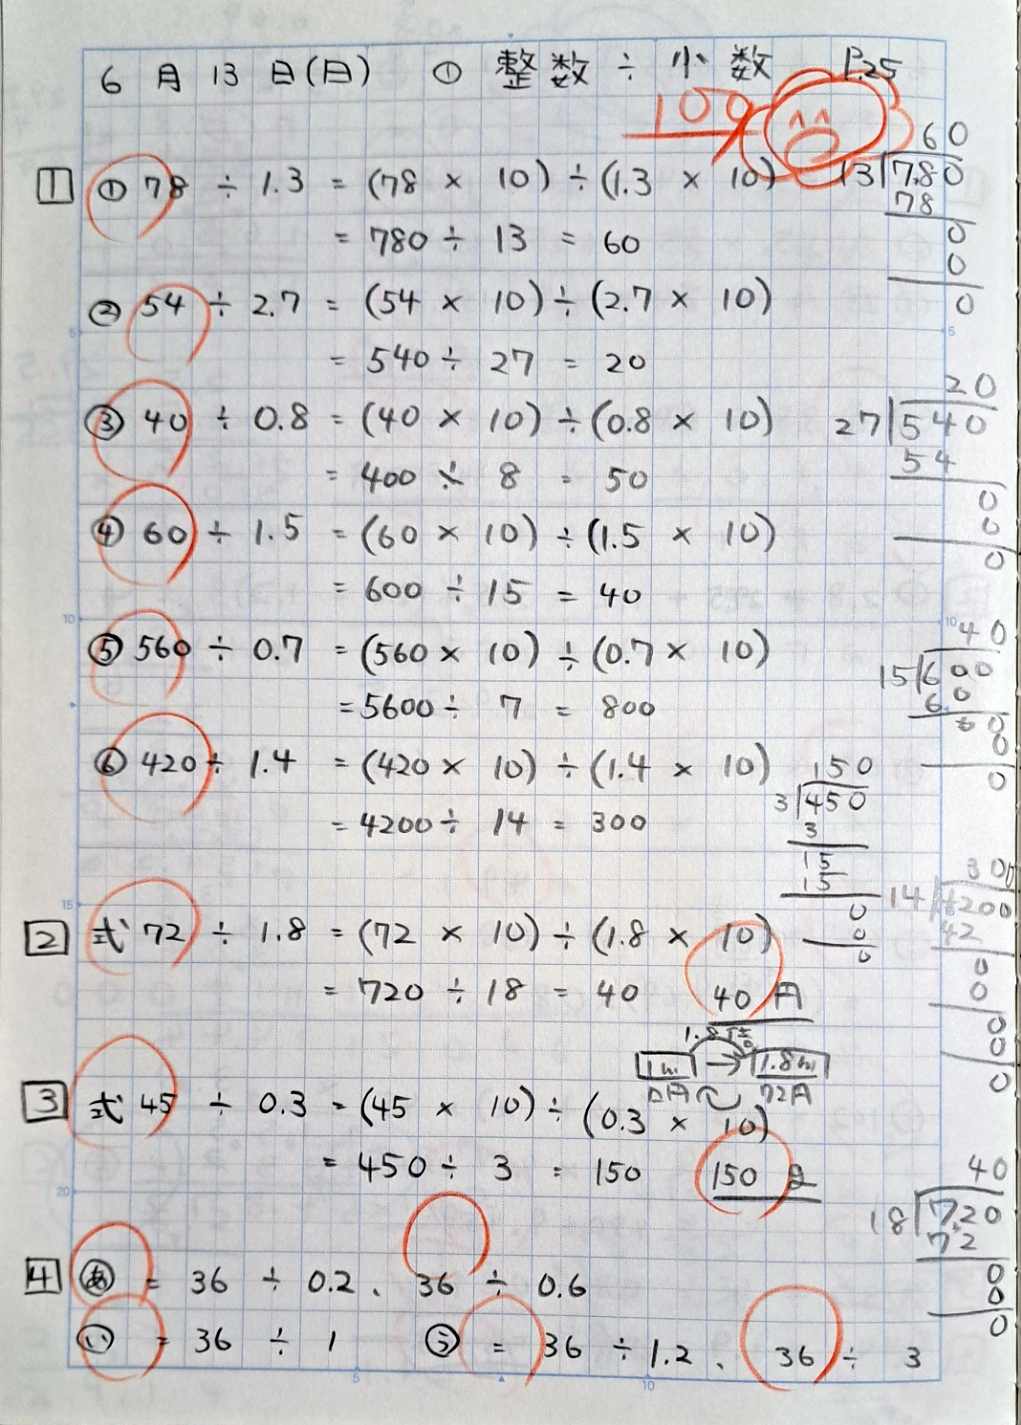 6月13日(日) ① 整数÷小数 P.25
100
1 ① 78 ÷ 1.3 = (78 × 10) ÷ (1.3 × 10)
= 780 ÷ 13 = 60
② 54 ÷ 2.7 = (54 × 10) ÷ (2.7 × 10)
= 540 ÷ 27 = 20
③ 40 ÷ 0.8 = (40 × 10) ÷ (0.8 × 10)
= 400 ÷ 8 = 50
④ 60 ÷ 1.5 = (60 × 10) ÷ (1.5 × 10)
= 600 ÷ 15 = 40
⑤ 560 ÷ 0.7 = (560 × 10) ÷ (0.7 × 10)
= 5600 ÷ 7 = 800
⑥ 420 ÷ 1.4 = (420 × 10) ÷ (1.4 × 10)
= 4200 ÷ 14 = 300
2 式 72 ÷ 1.8 = (72 × 10) ÷ (1.8 × 10)
= 720 ÷ 18 = 40 40円
1.8倍
1m → 1.8m
□円 72円
3 式 45 ÷ 0.3 = (45 × 10) ÷ (0.3 × 10)
= 450 ÷ 3 = 150 150g
4 あ = 36 ÷ 0.2、36 ÷ 0.6
い = 36 ÷ 1 う = 36 ÷ 1.2、36 ÷ 3
60
13 780
78
0
0
0
20
27 540
54
0
0
0
40
15 600
60
0
0
0
150
3 450
3
15
15
0
0
0
300
14 4200
42
0
0
0
0
0
40
18 720
72
0
0
0
5
10
15
20
5
10
5
10